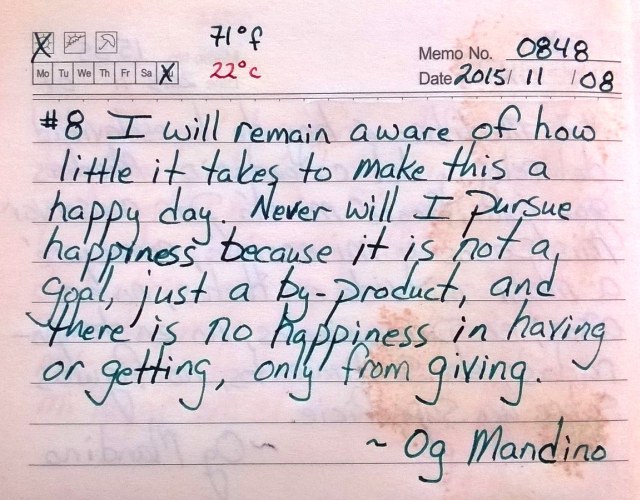 71°f
22°c
Memo No. 0848
Mo Tu We Th Fr Sa
Date 2015/ 11 /08
#8 I will remain aware of how
little it takes to make this a
happy day. Never will I pursue
happiness because it is not a
goal, just a by-product, and
there is no happiness in having
or getting, only from giving.
~ Og Mandino